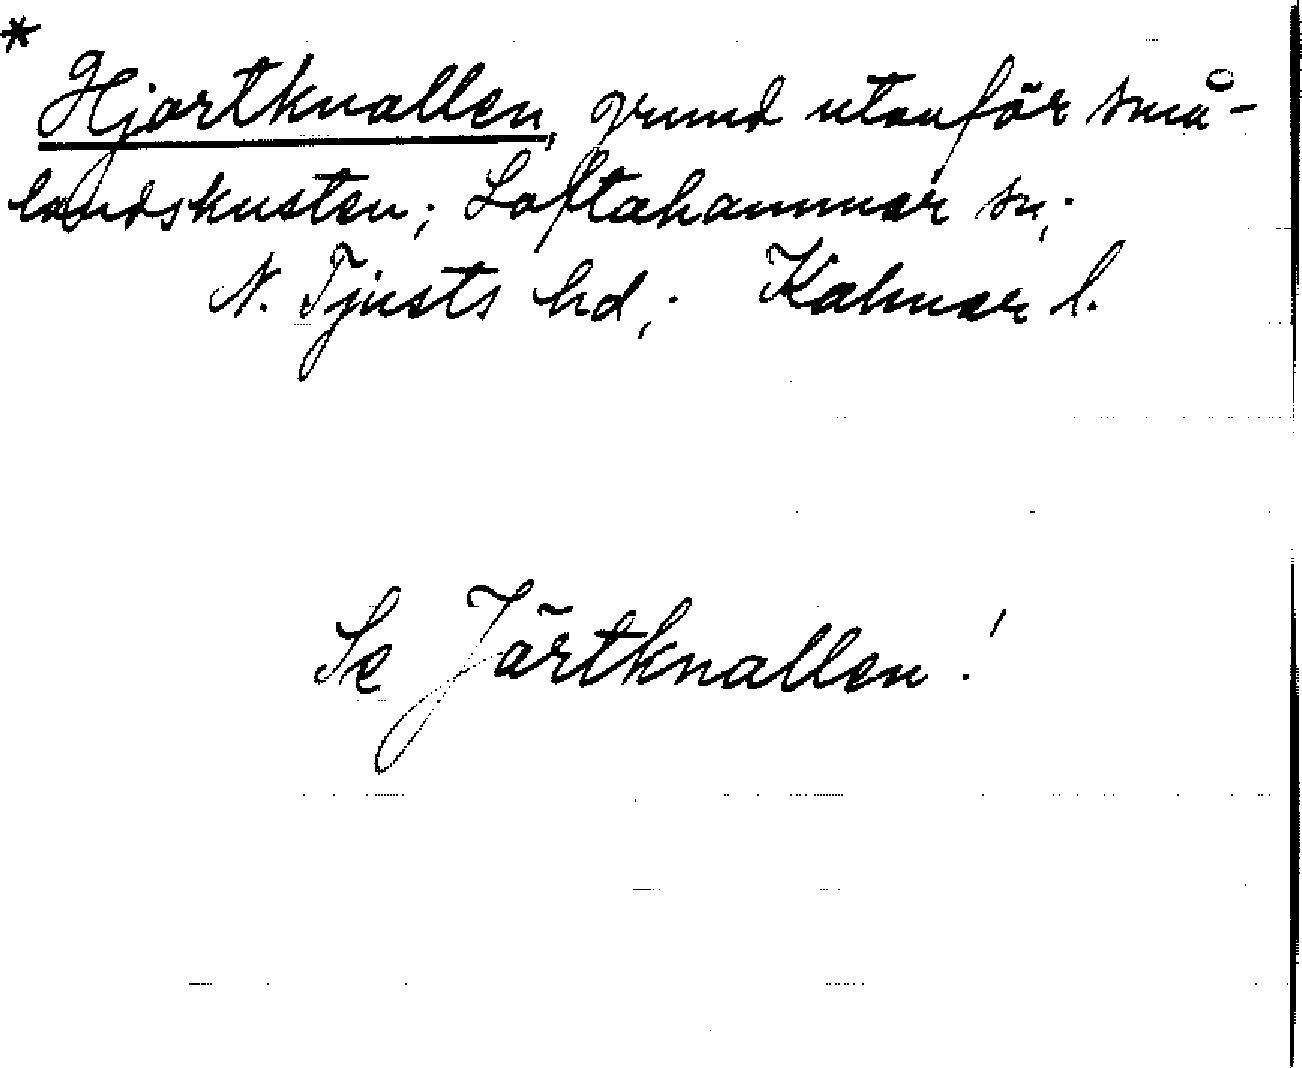 * Hjortknallen, grund utanför små-
landskusten; Loftahammar sn;
N. Tjusts hd; Kalmar l.
Se Jörtknallen!